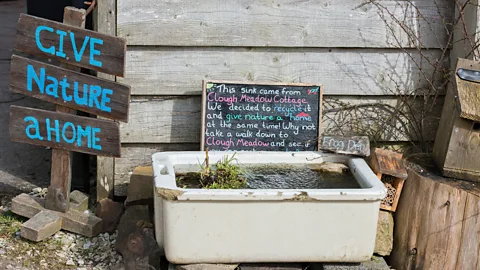 GIVE
Nature
a HOME
This sink came from
Clough Meadow Cottage.
We decided to recycle it
and give nature a home
at the same time! Why not
take a walk down to
Clough Meadow and see if